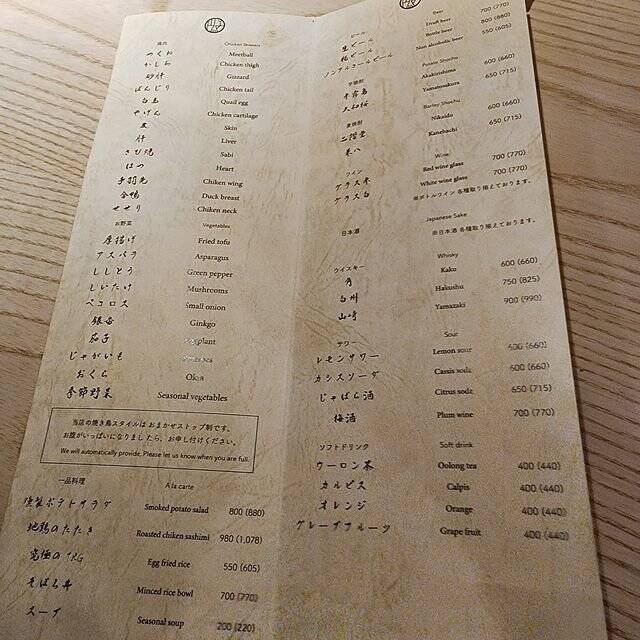 焼鳥 Chicken Skewers
つくね Meetball
かしわ Chicken thigh
砂肝 Gizzard
ぼんじり Chicken tail
白玉 Quail egg
やげん Chicken cartilage
皮 Skin
肝 Liver
さび焼 Sabi
はつ Heart
手羽先 Chiken wing
合鴨 Duck breast
せせり Chiken neck
お野菜 Vegetables
厚揚げ Fried tofu
アスパラ Asparagus
ししとう Green pepper
しいたけ Mushrooms
ペコロス Small onion
銀杏 Ginkgo
茄子 Eggplant
じゃがいも Potatoes
おくら Okra
季節野菜 Seasonal vegetables
当店の焼き鳥スタイルは おまかせストップ制です。
お腹がいっぱいになりましたら、お申し付けください。
We will automatically provide, Please let us know when you are full.
一品料理 A la carte
燻製ポテトサラダ Smoked potato salad 800 (880)
地鶏のたたき Roasted chiken sashimi 980 (1,078)
究極のTKG Egg fried rice 550 (605)
そぼろ丼 Minced rice bowl 700 (770)
スープ Seasonal soup 200 (220)
ビール Beer
生ビール Draft beer 700 (770)
瓶ビール Bottle beer 800 (880)
ノンアルコールビール Non alcoholic beer 550 (605)
芋焼酎 Potato Shochu
赤霧島 Akakirishima 600 (660)
大和桜 Yamatosakura 650 (715)
麦焼酎 Barley Shochu
二階堂 Nikaido 600 (660)
兼八 Kanehachi 650 (715)
ワイン Wine
グラス赤 Red wine glass 700 (770)
グラス白 White wine glass 700 (770)
※ボトルワイン 各種取り揃えております。
日本酒 Japanese Sake
※日本酒 各種取り揃えております。
ウイスキー Whisky
角 Kaku 600 (660)
白州 Hakushu 750 (825)
山崎 Yamazaki 900 (990)
サワー Sour
レモンサワー Lemon sour 600 (660)
カシスソーダ Cassis soda 600 (660)
じゃばら酒 Citrus soda 650 (715)
梅酒 Plum wine 700 (770)
ソフトドリンク Soft drink
ウーロン茶 Oolong tea 400 (440)
カルピス Calpis 400 (440)
オレンジ Orange 400 (440)
グレープフルーツ Grape fruit 400 (440)